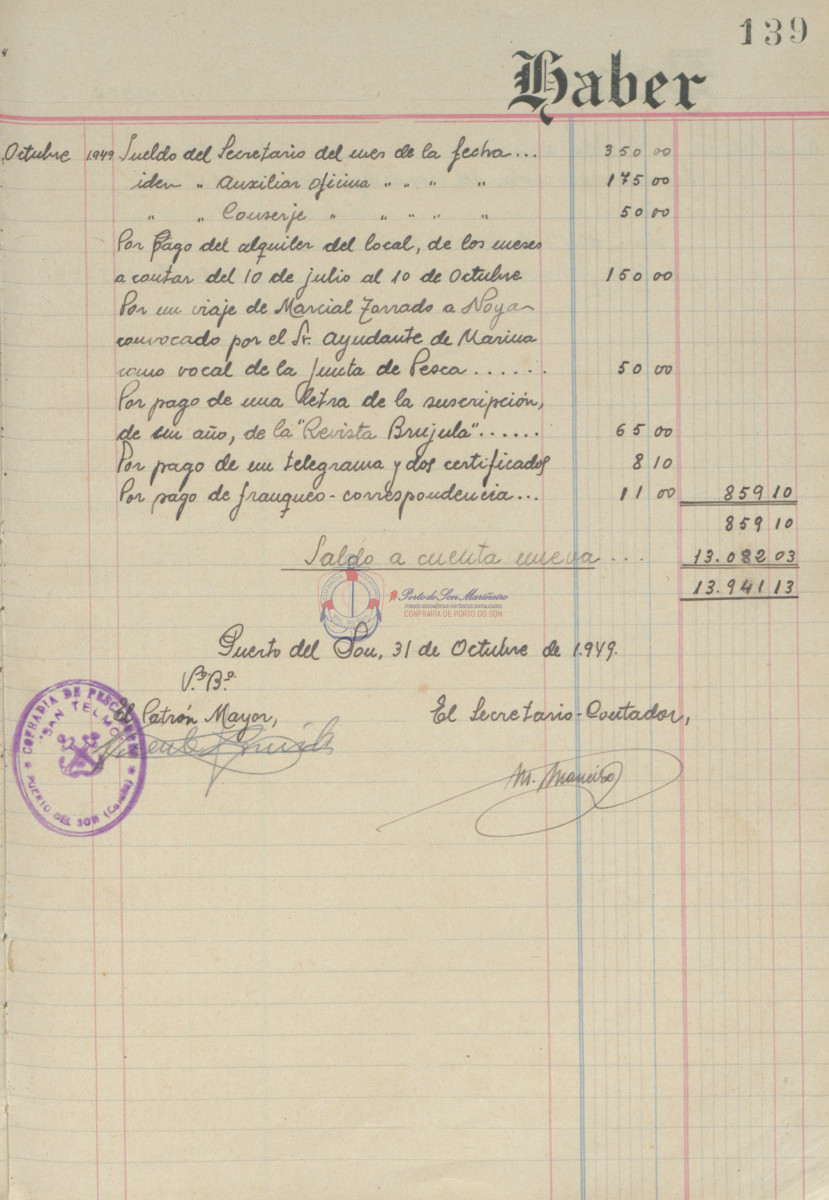 139
Haber
Octubre 1949 Sueldo del Secretario del mes de la fecha... 350 00
iden " Auxiliar oficina " " " " 175 00
" " Conserje " " " " " 50 00
Por pago del alquiler del local, de los meses
a contar del 10 de julio al 10 de Octubre 150 00
Por un viaje de Marcial Zorrado a Noya
convocado por el Sr. Ayudante de Marina
como vocal de la Junta de Pesca....... 50 00
Por pago de una letra de la suscripción,
de un año, de la "Revista Brujula"...... 65 00
Por pago de un telegrama y dos certificados 8 10
Por pago de franqueo-correspondencia... 11 00 859 10
859 10
Saldo a cuenta nueva ... 13.082 03
13.941 13
#Porto do Son Mariñeiro
FONDOS DOCUMENTAIS HISTÓRICOS DIXITALIZADOS
CONFRARÍA DE PORTO DO SON
Puerto del Son, 31 de Octubre de 1.949.
V.º B.º
El Patrón Mayor, El Secretario-Contador,
COFRADIA DE PESCADORES
"SAN TELMO"
PUERTO DEL SON (Coruña)